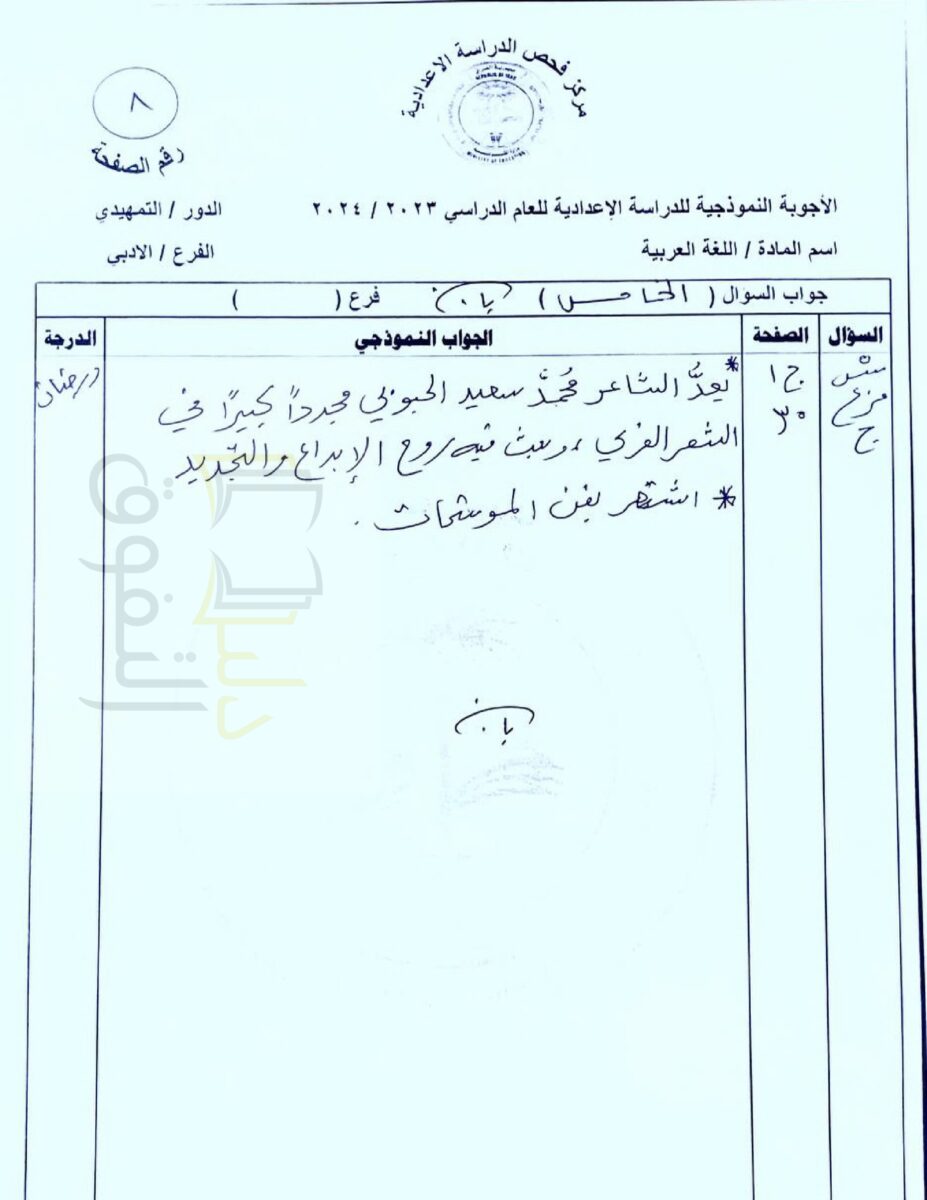 مركز فحص الدراسة الاعدادية
REPUBLIC OF IRAQ
MINISTRY OF EDUCATION
٨
رقم الصفحة
الأجوبة النموذجية للدراسة الإعدادية للعام الدراسي ٢٠٢٣ / ٢٠٢٤ الدور / التمهيدي
اسم المادة / اللغة العربية الفرع / الادبي
جواب السؤال ( الخامس ) فرع ( )
السؤال الصفحة الجواب النموذجي الدرجة
فرع ج ج١ ٣٠ درجتان
* يُعَدُّ الشاعر مُحمَّد سعيد الحبوبي مجدداً كبيرًا في
الشعر العربي ، وبعث فيه روح الإبداع والتجديد
* اشتهر بفن الموشحات .
دار التفوق